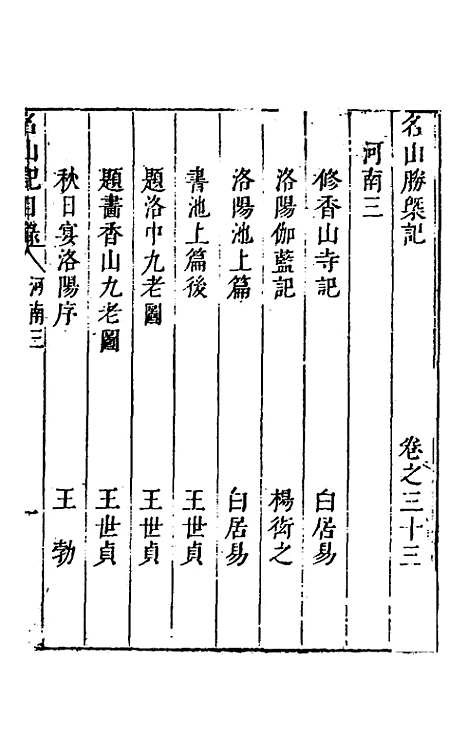 名山勝槩記　卷之三十三
河南三
修香山寺記　白居易
洛陽伽藍記　楊衒之
洛陽池上篇　白居易
書池上篇後　王世貞
題洛中九老圖　王世貞
題畫香山九老圖　王世貞
秋日宴洛陽序　王勃
名山記目錄　河南三　一